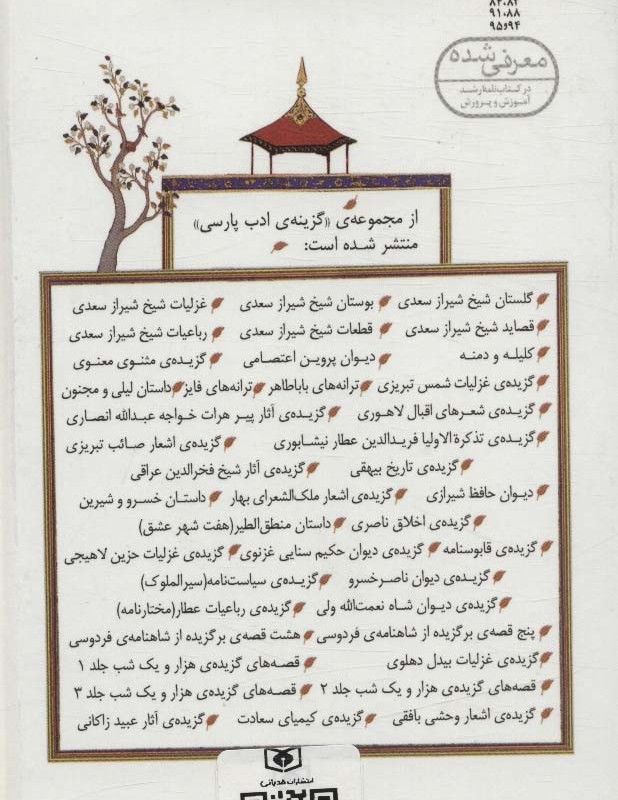 ۸۲،۸۲
۹۱،۸۸
۹۵و۹۴
معرفی شده
در کتاب‌نامه رشد
آموزش و پرورش
از مجموعه‌ی «گزینه‌ی ادب پارسی»
منتشر شده است:
گلستان شیخ شیراز سعدی بوستان شیخ شیراز سعدی غزلیات شیخ شیراز سعدی
قصاید شیخ شیراز سعدی قطعات شیخ شیراز سعدی رباعیات شیخ شیراز سعدی
کلیله و دمنه دیوان پروین اعتصامی گزیده‌ی مثنوی معنوی
گزیده‌ی غزلیات شمس تبریزی ترانه‌های باباطاهر ترانه‌های فایز داستان لیلی و مجنون
گزیده‌ی شعرهای اقبال لاهوری گزیده‌ی آثار پیر هرات خواجه عبدالله انصاری
گزیده‌ی تذکرة الاولیا فریدالدین عطار نیشابوری گزیده‌ی اشعار صائب تبریزی
گزیده‌ی تاریخ بیهقی گزیده‌ی آثار شیخ فخرالدین عراقی
دیوان حافظ شیرازی گزیده‌ی اشعار ملک‌الشعرای بهار داستان خسرو و شیرین
گزیده‌ی اخلاق ناصری داستان منطق‌الطیر(هفت شهر عشق)
گزیده‌ی قابوسنامه گزیده‌ی دیوان حکیم سنایی غزنوی گزیده‌ی غزلیات حزین لاهیجی
گزیده‌ی دیوان ناصرخسرو گزیده‌ی سیاست‌نامه(سیرالملوک)
گزیده‌ی دیوان شاه نعمت‌الله ولی گزیده‌ی رباعیات عطار(مختارنامه)
پنج قصه‌ی برگزیده از شاهنامه‌ی فردوسی هشت قصه‌ی برگزیده از شاهنامه‌ی فردوسی
گزیده‌ی غزلیات بیدل دهلوی قصه‌های گزیده‌ی هزار و یک شب جلد ۱
قصه‌های گزیده‌ی هزار و یک شب جلد ۲ قصه‌های گزیده‌ی هزار و یک شب جلد ۳
گزیده‌ی اشعار وحشی بافقی گزیده‌ی کیمیای سعادت گزیده‌ی آثار عبید زاکانی
انتشارات قدیانی